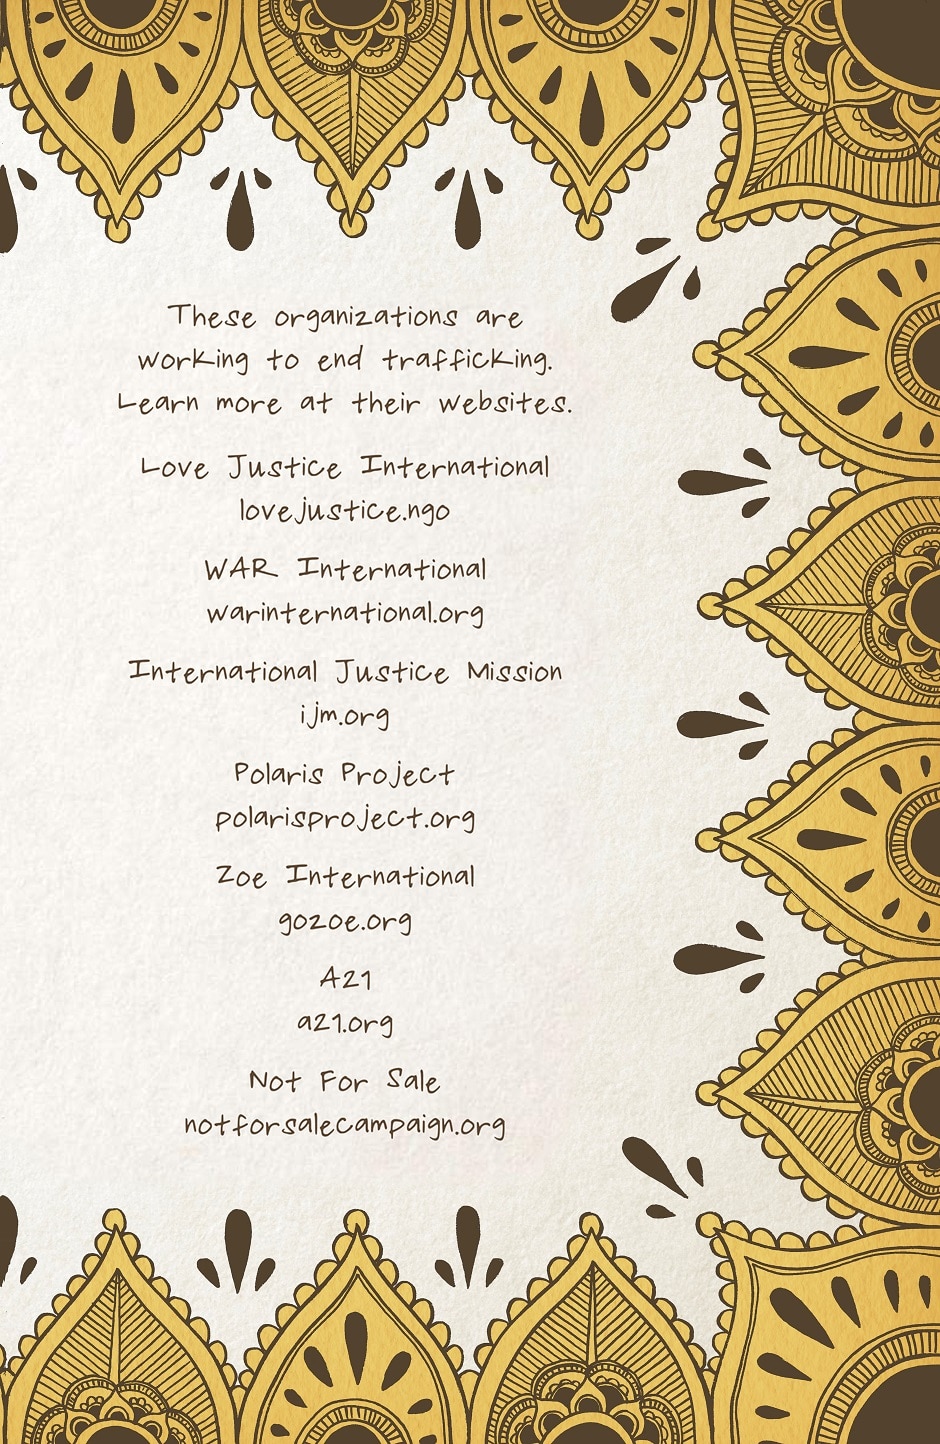 These organizations are
working to end trafficking.
Learn more at their websites.
Love Justice International
lovejustice.ngo
WAR International
warinternational.org
International Justice Mission
ijm.org
Polaris Project
polarisproject.org
Zoe International
gozoe.org
A21
a21.org
Not For Sale
notforsalecampaign.org